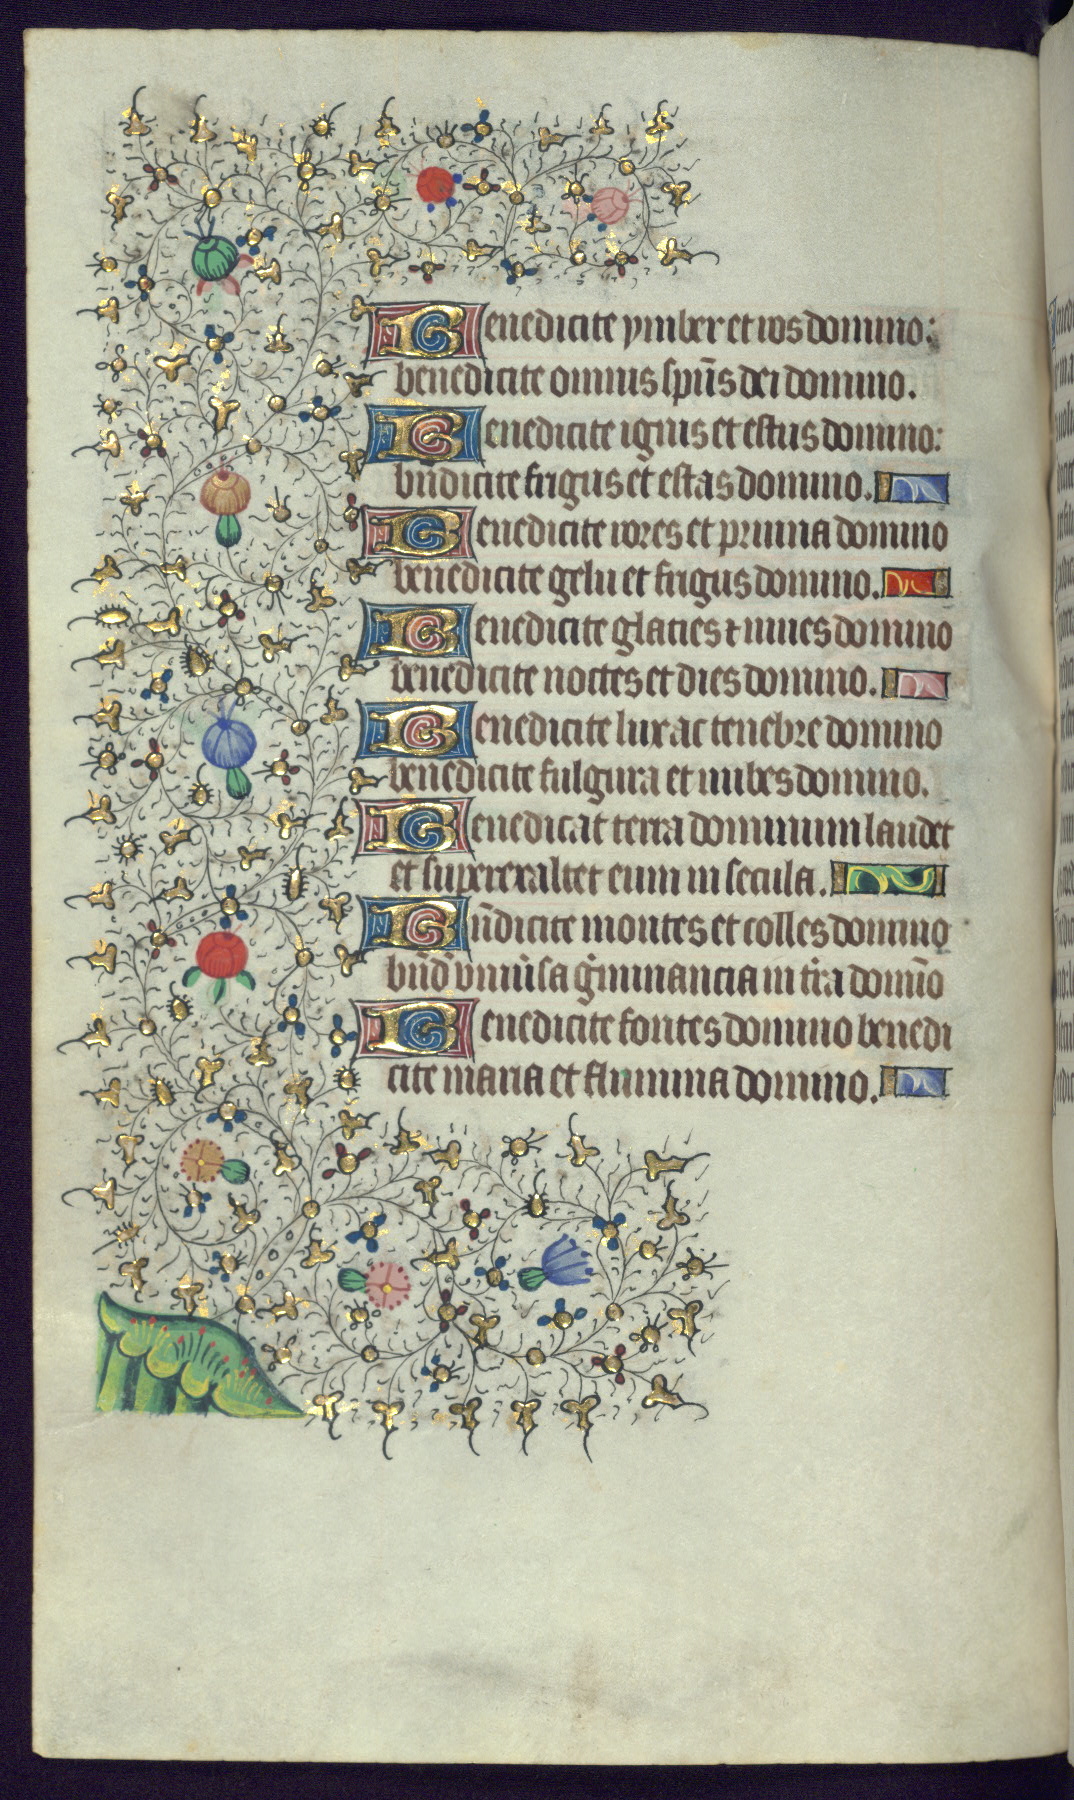 Benedicite ymber et ros domino:
benedicite omnis spūs dei domino.
Benedicite ignis et estus domino:
bn̄dicite frigus et estas domino.
Benedicite rores et pruina domino
benedicite gelu et frigus domino.
Benedicite glacies ⁊ niues domino
benedicite noctes et dies domino.
Benedicite lux ac tenebre domino
benedicite fulgura et nubes domino.
Benedicat terra dominum laudet
et superexaltet eum in secula.
Bn̄dicite montes et colles domino
bn̄d vniūsa gminancia in tra domīo
Benedicite fontes domino benedi
cite maria et flumina domino.